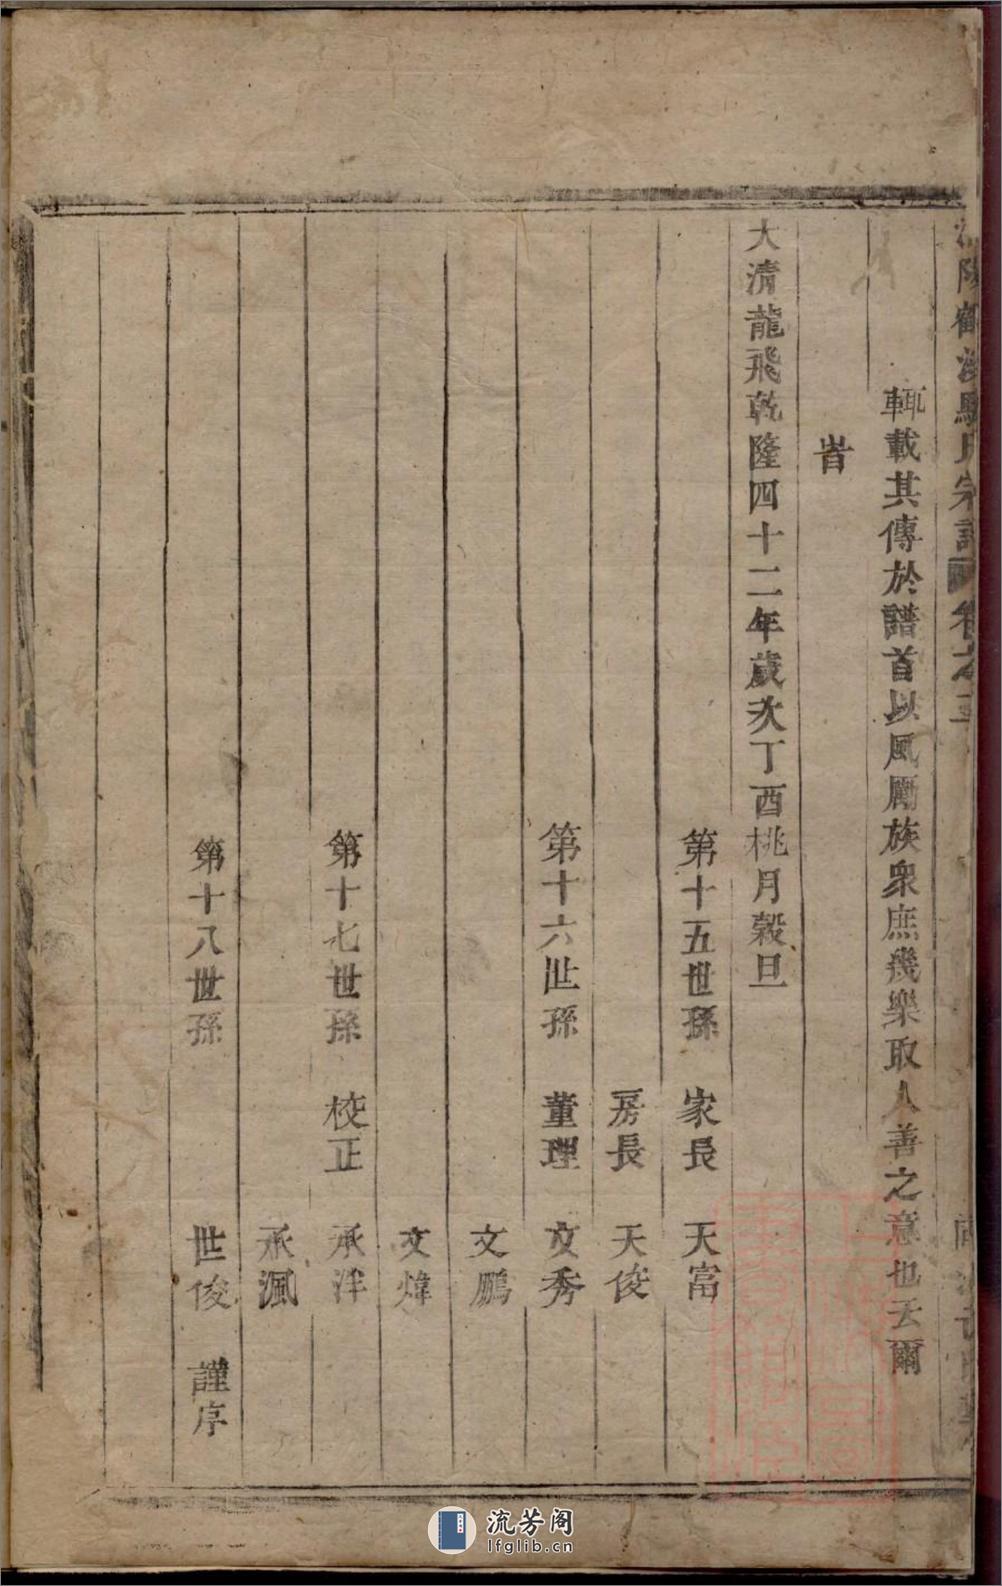 宗譜 卷之
輒載其傳於譜首以風厲族衆庶幾樂取人善之意也云爾
旹
大清龍飛乾隆四十二年歲次丁酉桃月榖旦
第十五世孫 家長 天富
房長 天俊
第十六世孫 董理 文秀
文鵬
文煒
第十七世孫 校正 承洋
承渢
第十八世孫 世俊 謹序
流芳阁
lfglib.cn